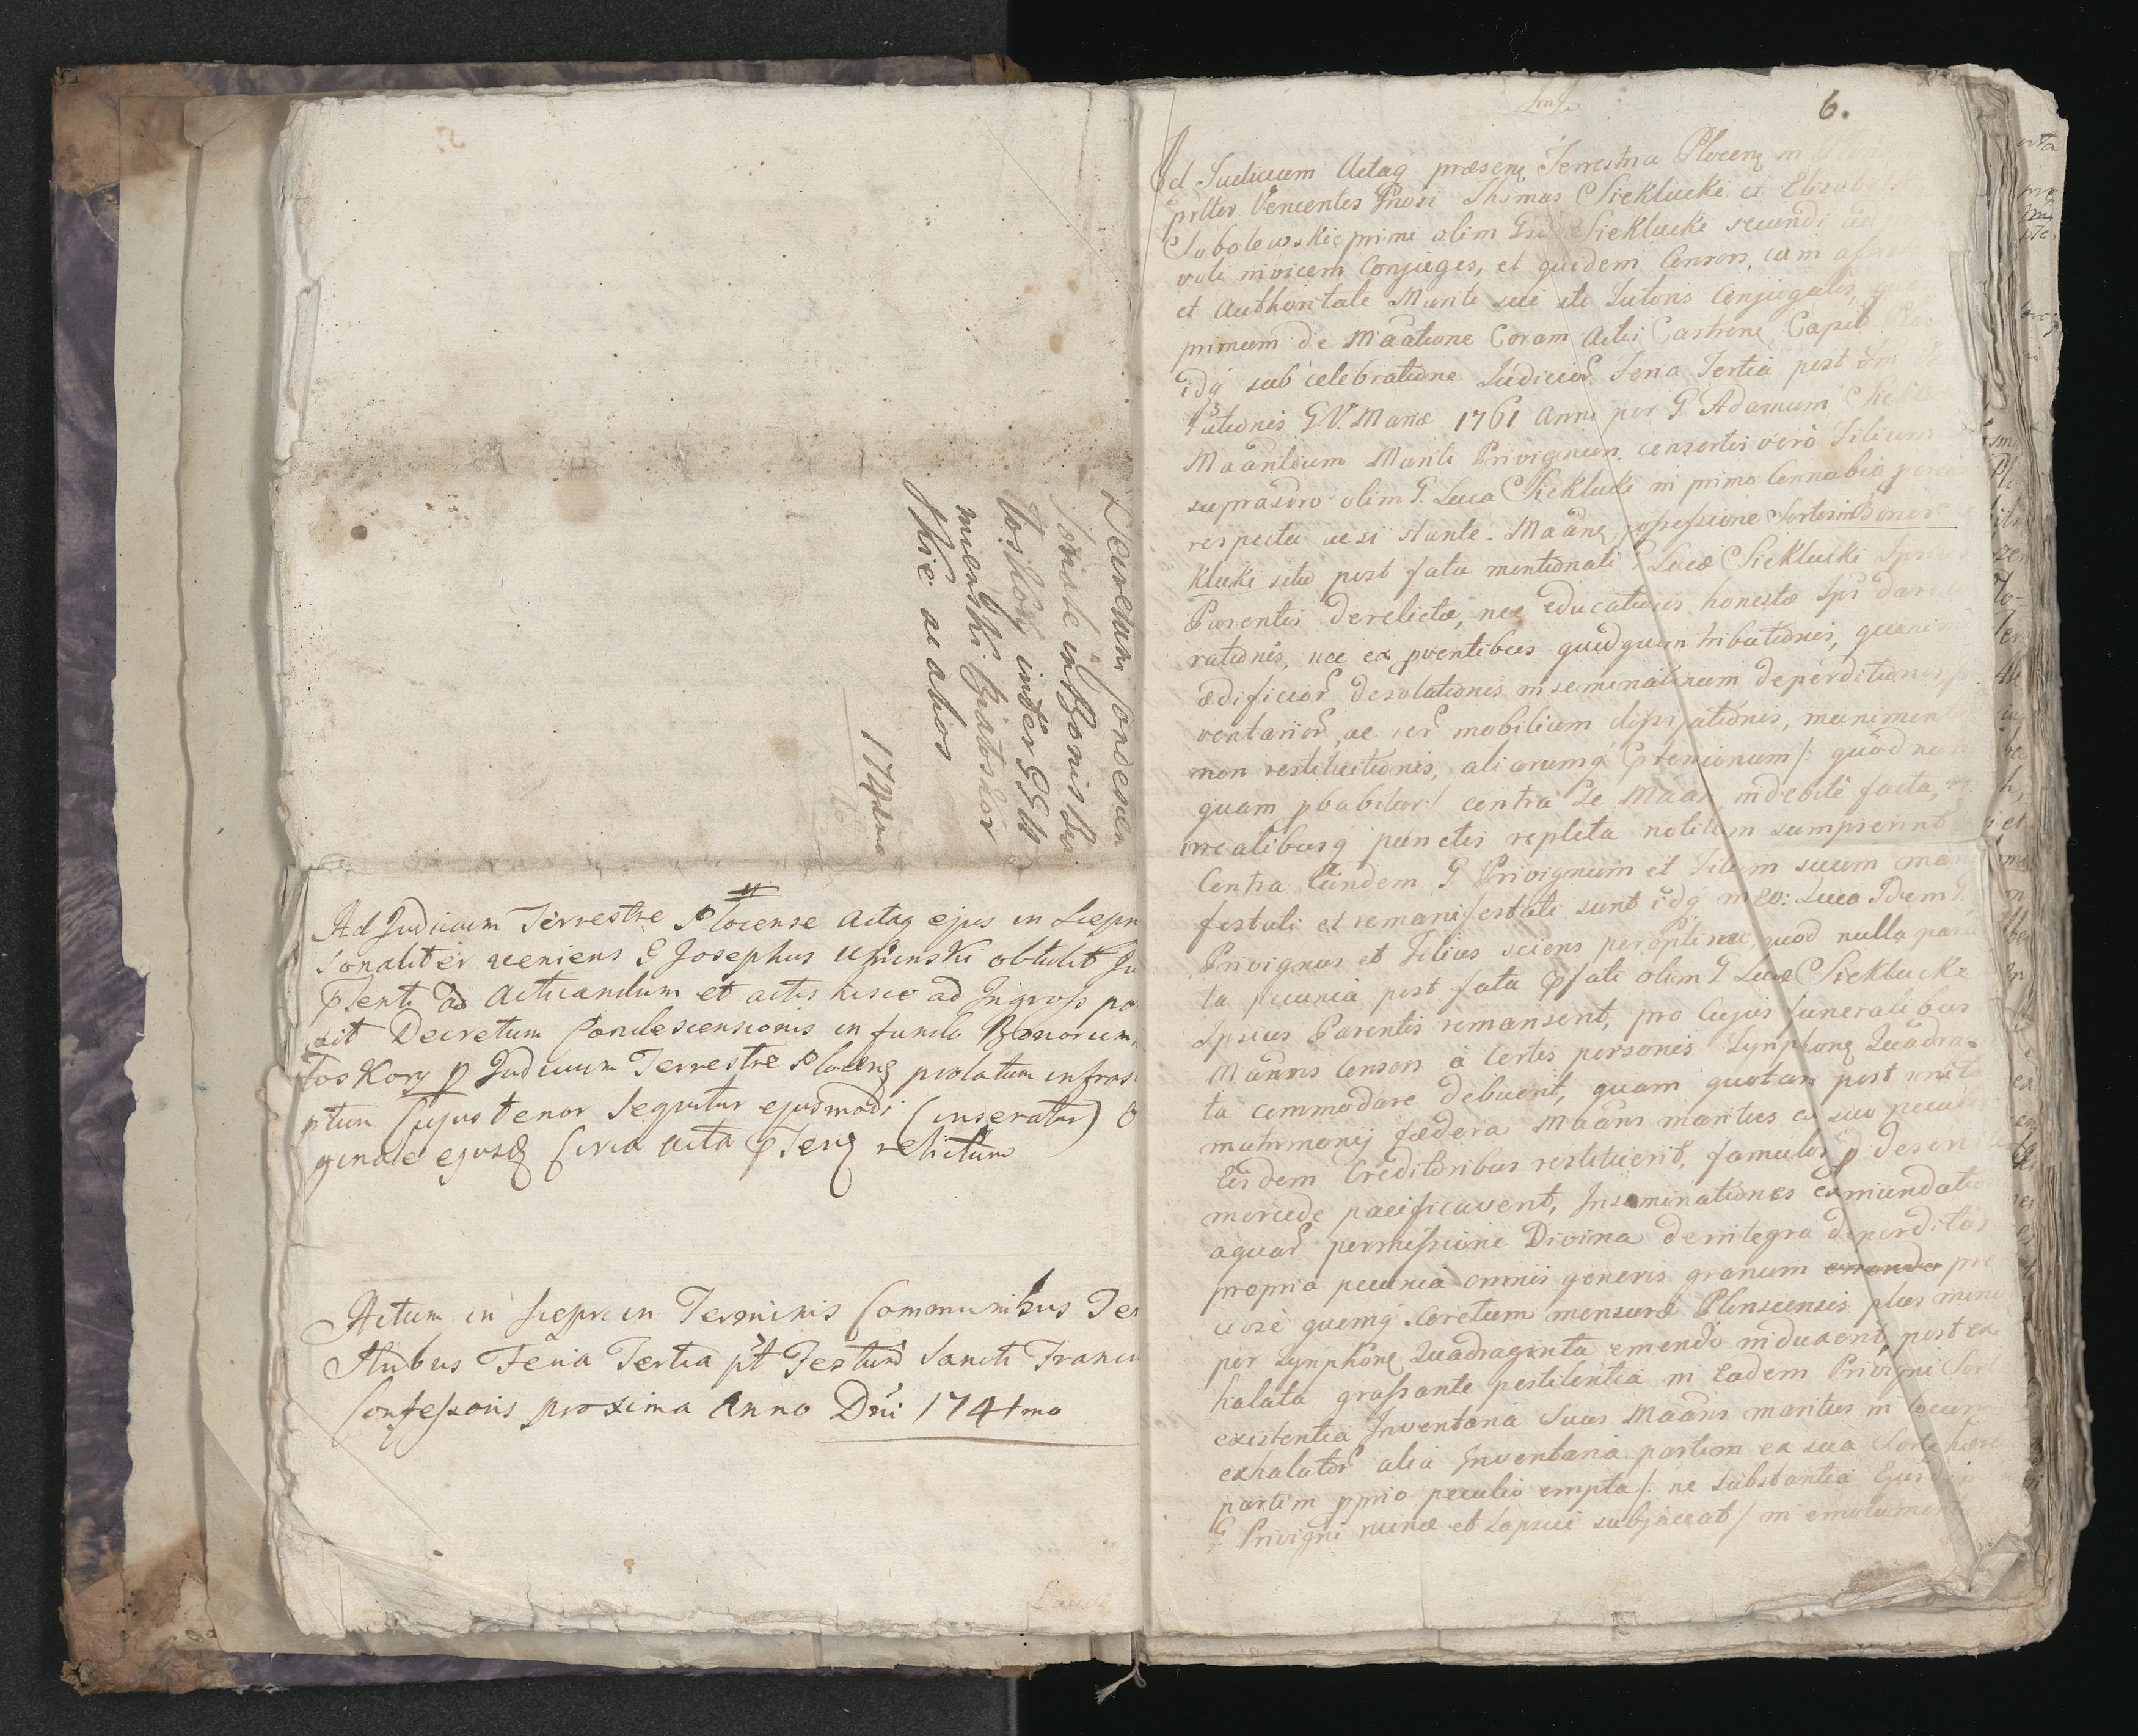 Decretum Condescen
sionale in Bonis Bia
toskory inter GG U
mienski Białoskor
skie ac alios
1741mo
Ad Judicium Terrestre Plocense Actaq ejus in Siepr
sonaliter veniens G Josephus Uminski obtulit Ju
Pſenti ad Acticandum et actis hisce ad Ingroſs por
xit Decretum Condescensionis in fundo Bonorum
toskory p Judicium Terrestre Ploceng prolatum infras
ptum Cujus tenor Sequitur ejusmodi (inseratur) O
ginale ejusd Circa acta Pſeng relictum
Actum in Sieprc in Terminis Communibus Ter
stribus Feria Tertia pt Festum Sancti Franci
Confeſsoris proxima Anno Dni 1741mo
6.
Ad Judicium Actaq præseng Terrestria Plocenq in
prlter Venientes Gnosi Thomas Sieklucki et Elisab
Sobolewskie primi olim Sieklucki secundi
voti invicem Conjuges, et quidem Consors, cum aſsi
et Authoritate Mariti sui uti Tutoris Conjugalis,
primum de Maatione Coram Actis Castrenq Capit
idq sub celebratione Judicior Feria Tertia post
utionis G.V. Mariæ 1761 Anni per G Adamum Sieklu
Maantium Mariti Privignum, consortis verò Filium
suprascro olim G. Luca Sieklucki in primo Connubio
respectu ac si stante Maanq poſseſsione Sortis in Bonis
klucki sitæ post fata mentionati G Lucæ Sieklucki Ipsius
Parentis derelictæ, nec educationis honestæ Ipsi dare
rationis, nec ex pventibus quidquam tributionis,
ædificior desolationis inseminationum deperditionis
ventarior, ac rer mobilium diſsipationis, munimen
non restitutionis, aliarumq Ptensionum /: quod nun
quam pbabitur:/ contra Se Maan indebitè facta,
irrealibusq punctis repleta notitiam sumpserunt
Contra Eundem G Privignum et Filium suum mani
festati et remanifestati sunt idq in eo: Quia Idem G.
Privignus et Filius sciens peroptime, quod nulla para
ta pecunia post fata Pfati olim G Lucæ Sieklucki
Ipsius Parentis remanserit, pro Cujus funeralibus
Maans Consors à Certis personis Tynphonq Quadra
ta commodare debuerit, quam quotam post
matrimonij fœdera Maans maritus ex suo peculi
Eisdem Creditoribus restituerit, famulos p deservi
mercede pacificaverit, Inseminationes ex inundatio
aquar permiſsione Divina de integro deperditas
propria pecunia omnis generis granum pre
tiosè quemq Coretum mensuræ Plonscensis plus minu
per Tynphonq Quadraginta emendo induxerit, post ex
halata graſsante pestilentia in Eadem Privigni Sorte
existentia Inventaria Suus Maans maritus in locum
exhalator alia Inventaria partim ex sua Sorte
partim pprio peculio empta /: ne substantia Ejusdem
G Privigni ruinæ et Lapsui subjaceat:/ in emolument